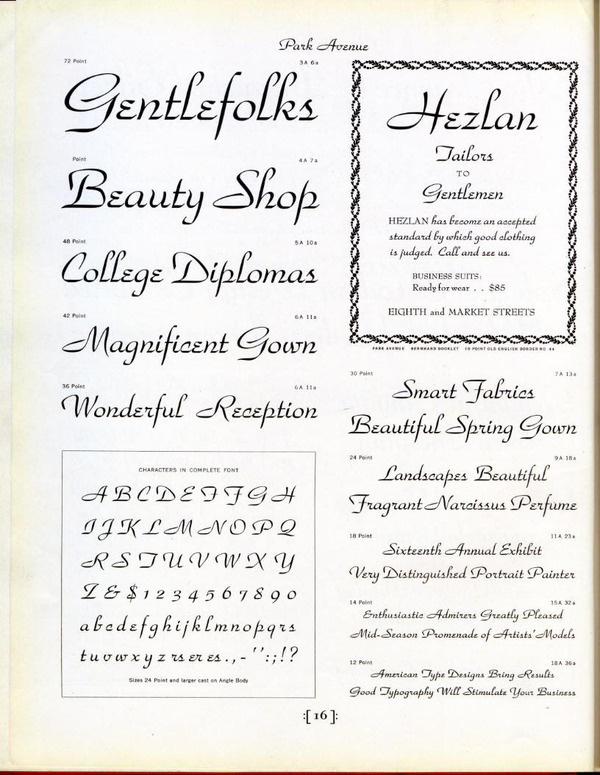 Park Avenue
72 Point 3A 6a
Gentlefolks
Point 4A 7a
Beauty Shop
48 Point 5A 10a
College Diplomas
42 Point 6A 11a
Magnificent Gown
36 Point 6A 11a
Wonderful Reception
CHARACTERS IN COMPLETE FONT
A B C D E F F G H
I J K L M N O P Q
R S T U V W X Y
Z & $ 1 2 3 4 5 6 7 8 9 0
a b c d e f g h i j k l m n o p q r s
t u v w x y z rs er es . , - ' ' : ; ! ?
Sizes 24 Point and larger cast on Angle Body
Hezlan
Tailors
TO
Gentlemen
HEZLAN has become an accepted
standard by which good clothing
is judged. Call and see us.
BUSINESS SUITS:
Ready for wear . . $85
EIGHTH and MARKET STREETS
PARK AVENUE BERNHARD BOOKLET 10 POINT OLD ENGLISH BORDER NO. 44
30 Point 7A 13a
Smart Fabrics
Beautiful Spring Gown
24 Point 9A 18a
Landscapes Beautiful
Fragrant Narcissus Perfume
18 Point 11A 23a
Sixteenth Annual Exhibit
Very Distinguished Portrait Painter
14 Point 15A 32a
Enthusiastic Admirers Greatly Pleased
Mid-Season Promenade of Artists' Models
12 Point 18A 36a
American Type Designs Bring Results
Good Typography Will Stimulate Your Business
:[ 16 ]: